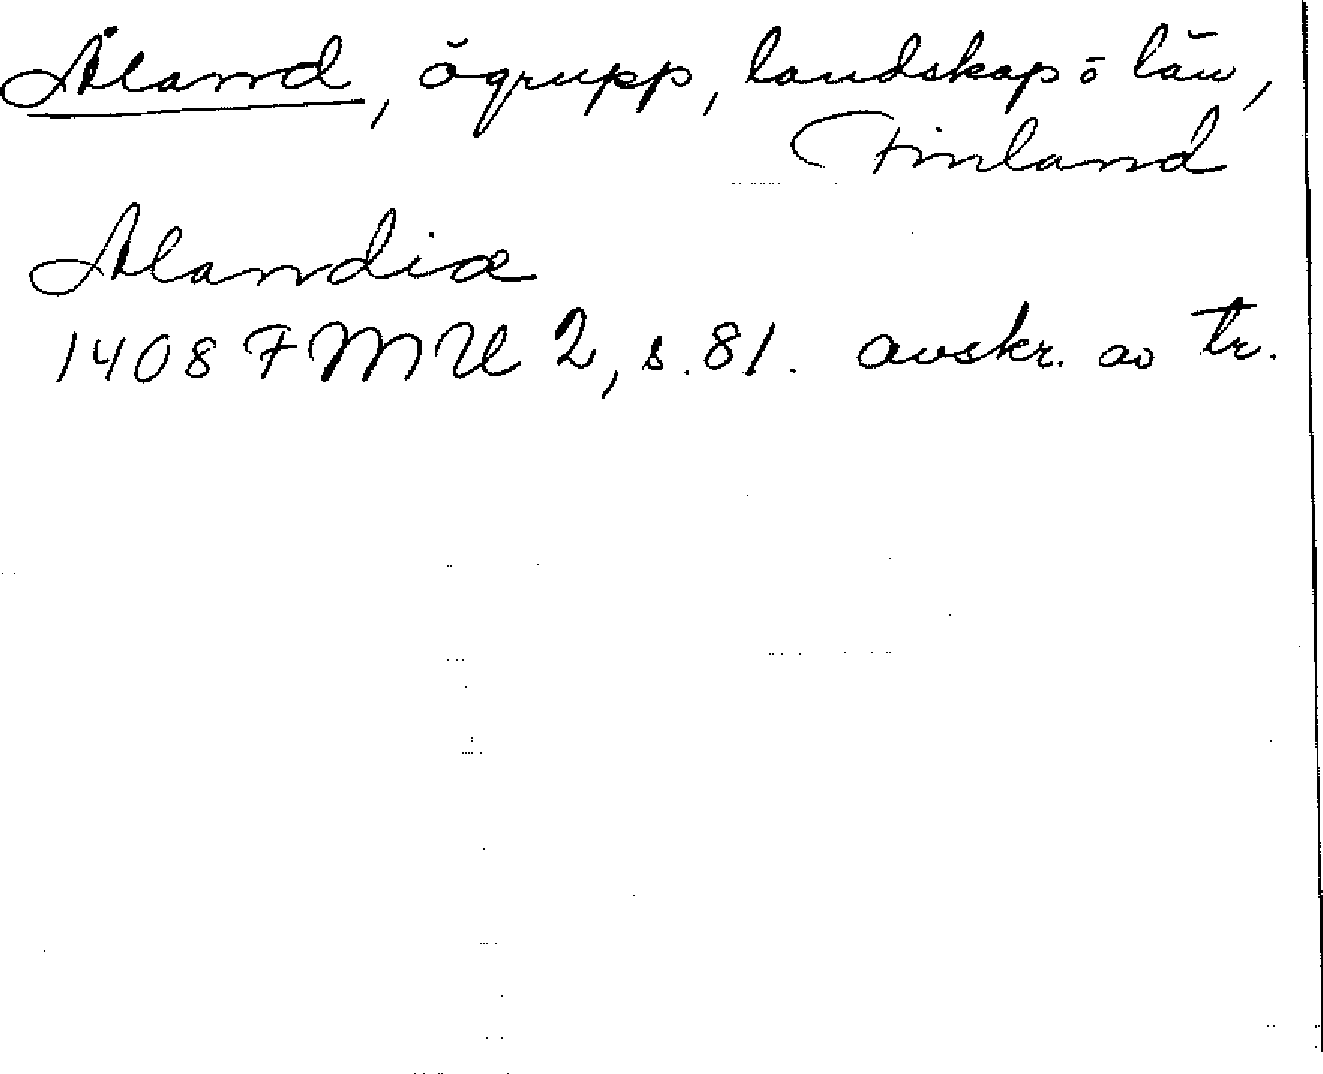 Åland, ögrupp, landskap o län,
Finland
Alandiæ
1408 FMU 2, s. 81. avskr. av tr.